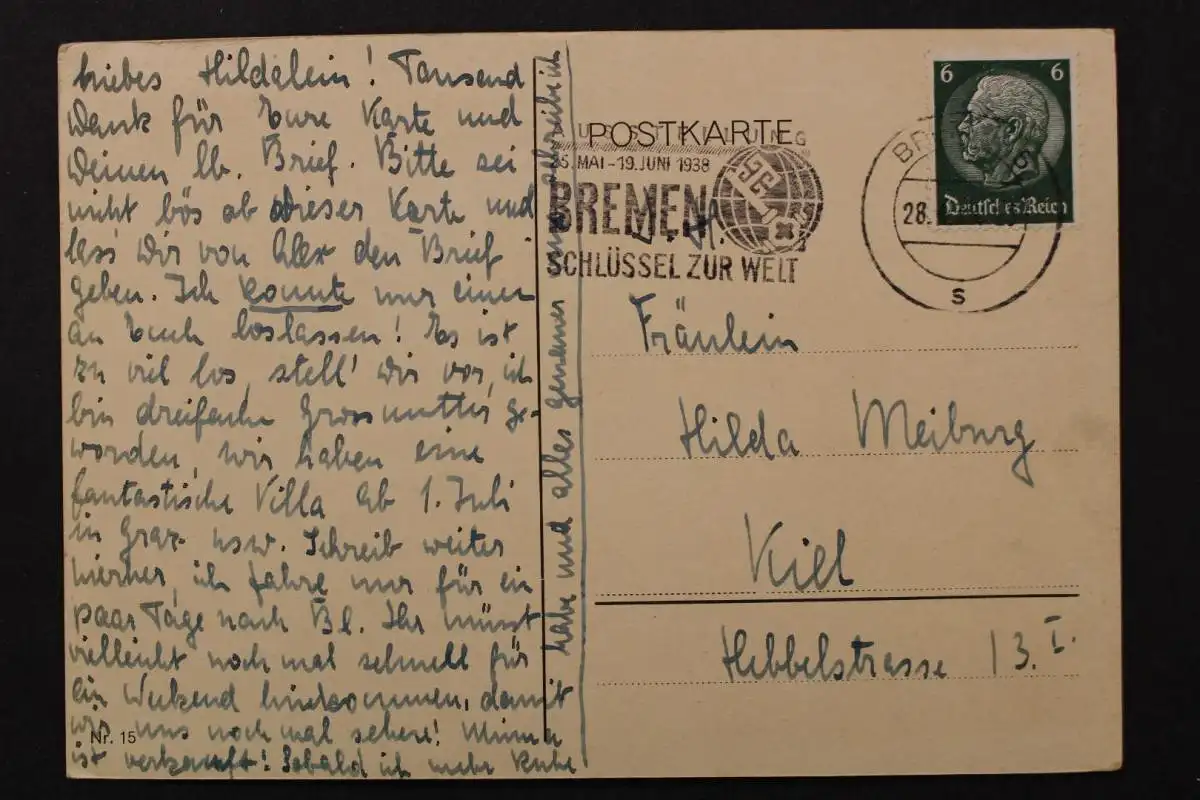 Liebes Hildalein! Tausend
Dank für Eure Karte und
Deinen lb. Brief. Bitte sei
nicht bös ob dieser Karte und
lass Dir von Alex den Brief
geben. Ich konnte nur einen
an Euch loslassen! Es ist
zu viel los, stell' Dir vor, ich
bin dreifache Grossmutter ge-
worden, wir haben eine
fantastische Villa ab 1. Juli
in Graz usw. Schreib weiter
hierher, ich fahre nur für ein
paar Tage nach Bl. Ihr müsst
vielleicht noch mal schnell für
ein Weekend hinkommen, damit
wir uns noch mal sehen!
ist verkauft! Sobald ich mehr Ruhe
habe und alles genauer schreibe ich
Nr. 15
POSTKARTE
MAI - 19. JUNI 1938
BREMEN
SCHLÜSSEL ZUR WELT
6 6
Deutsches Reich
BR
28.
S
Fräulein
Hilda Meiburg
Kiel
Hebbelstrasse 13. I.